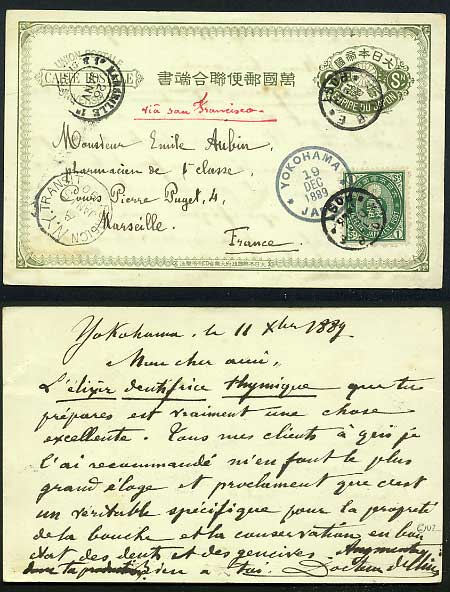 UNION POSTALE
CARTE POSTALE
書端合聯便郵國萬
大日本帝國
EMPIRE DU JAPON
MARSEILLE
via san Francisco
Monsieur Emile Aubin
pharmacien de 1e classe,
Cours Pierre Puget, 4,
Marseille.
France
YOKOHAMA
19
DEC
1889
TRANSIT
Yokohama, le 11 Xbre 1889
Mon cher ami,
L'élixir dentifrice thymique que tu
prépares est vraiment une chose
excellente. Tous mes clients à qui je
l'ai recommandé m'en font le plus
grand éloge et proclament que c'est
un véritable spécifique pour la propreté
de la bouche et la conservation en bon
état des dents et des gencives. Augmente
donc ta production. Bien à toi. Docteur